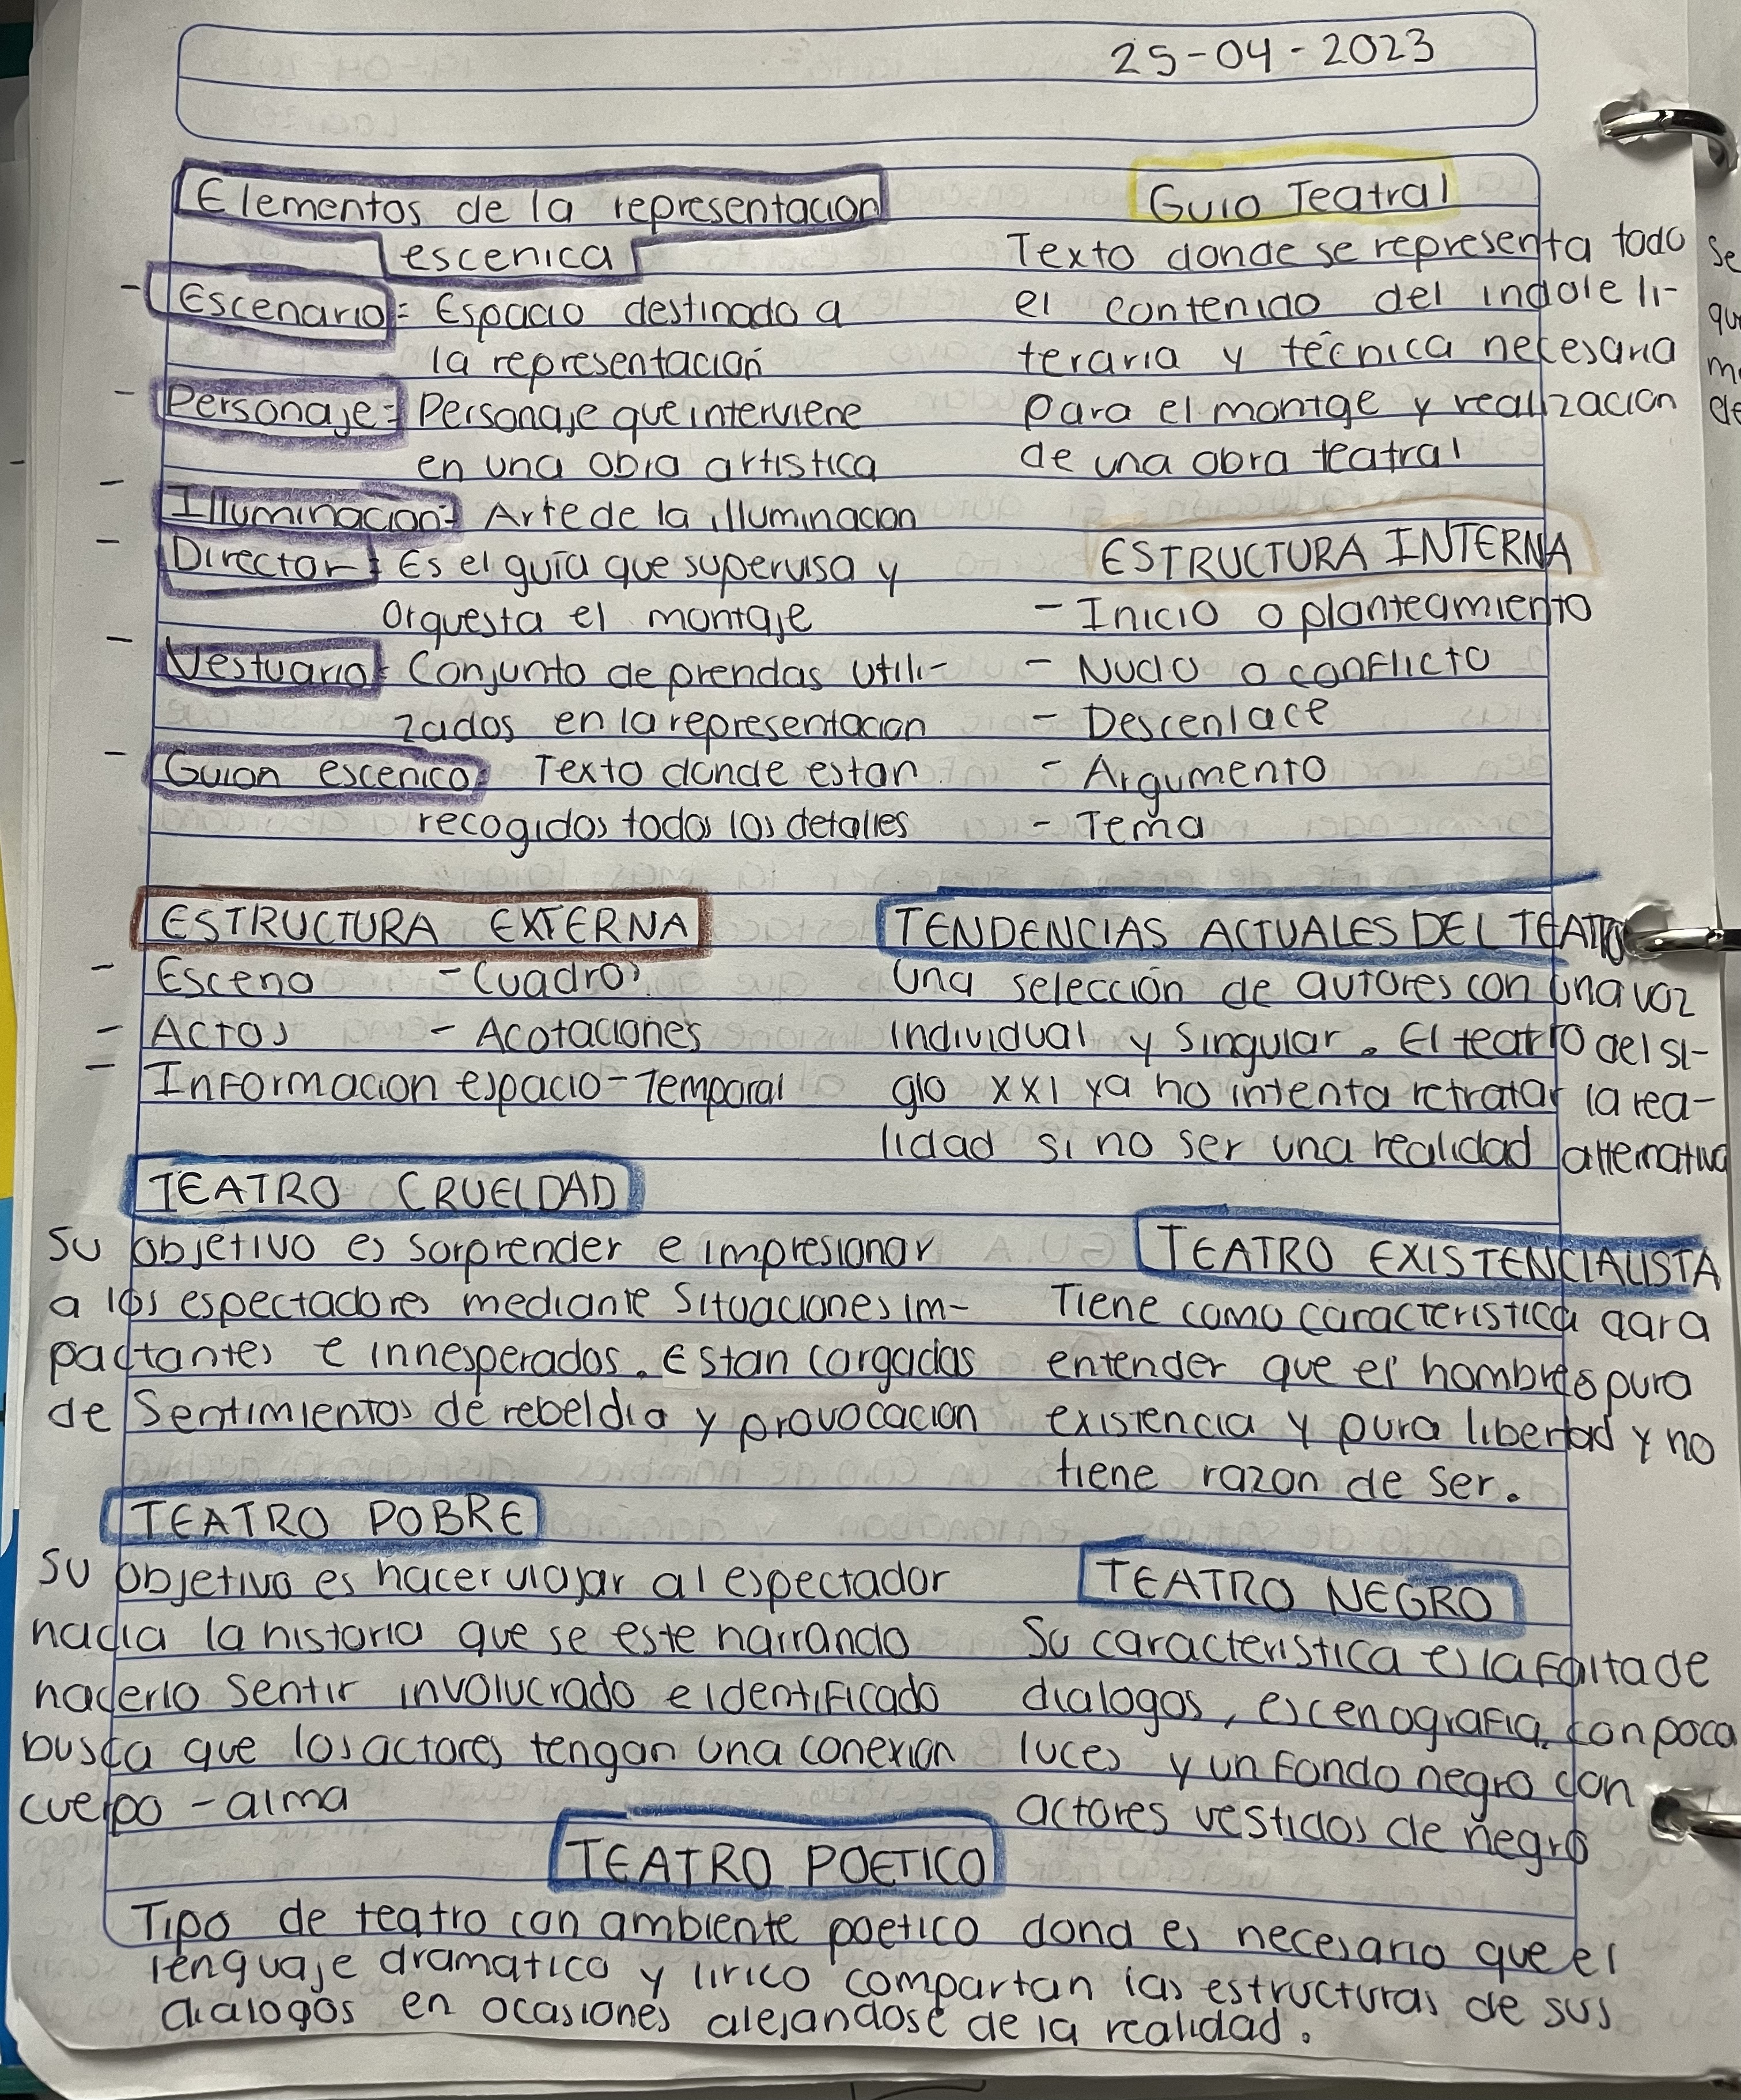 25-04-2023
Elementos de la representacion
escenica
- Escenario: Espacio destinado a
la representación
- Personaje: Personaje que interviene
en una obra artistica
- Illuminacion: Arte de la illuminacion
- Director: Es el guía que supervisa y
orquesta el montaje
- Vestuario: Conjunto de prendas utili-
zados en la representacion
- Guion escenico: Texto donde estan
recogidos todos los detalles
Guio Teatral
Texto donde se representa todo
el contenido del indole li-
teraria y técnica necesaria
para el montge y realizacion
de una obra teatral
ESTRUCTURA INTERNA
- Inicio o planteamiento
- Nudo o conflicto
- Descenlace
- Argumento
- Tema
ESTRUCTURA EXTERNA
- Escena - Cuadros
- Actos - Acotaciones
- Informacion espacio-Temporal
TENDENCIAS ACTUALES DEL TEATRO
Una selección de autores con una voz
individual y singular. El teatro del si-
glo xxi ya no intenta retratar la rea-
lidad si no ser una realidad alternativa
TEATRO CRUELDAD
Su objetivo es sorprender e impresionar
a los espectadores mediante situaciones im-
pactantes e innesperados. Estan cargadas
de sentimientos de rebeldia y provocacion
TEATRO EXISTENCIALISTA
Tiene como caracteristica dara
entender que el hombre s pura
existencia y pura libertad y no
tiene razon de ser.
TEATRO POBRE
Su objetivo es hacer viajar al espectador
hacia la historia que se este narrando
hacerlo sentir involucrado e identificado
busca que los actores tengan una conexion
cuerpo - alma
TEATRO NEGRO
Su caracteristica es la falta de
dialogos, escenografia, con poca
luces y un fondo negro con
actores vestidos de negro
TEATRO POETICO
Tipo de teatro con ambiente poetico dond es necesario que el
lenguaje dramatico y lirico compartan las estructuras de sus
dialogos en ocasiones alejandose de la realidad.